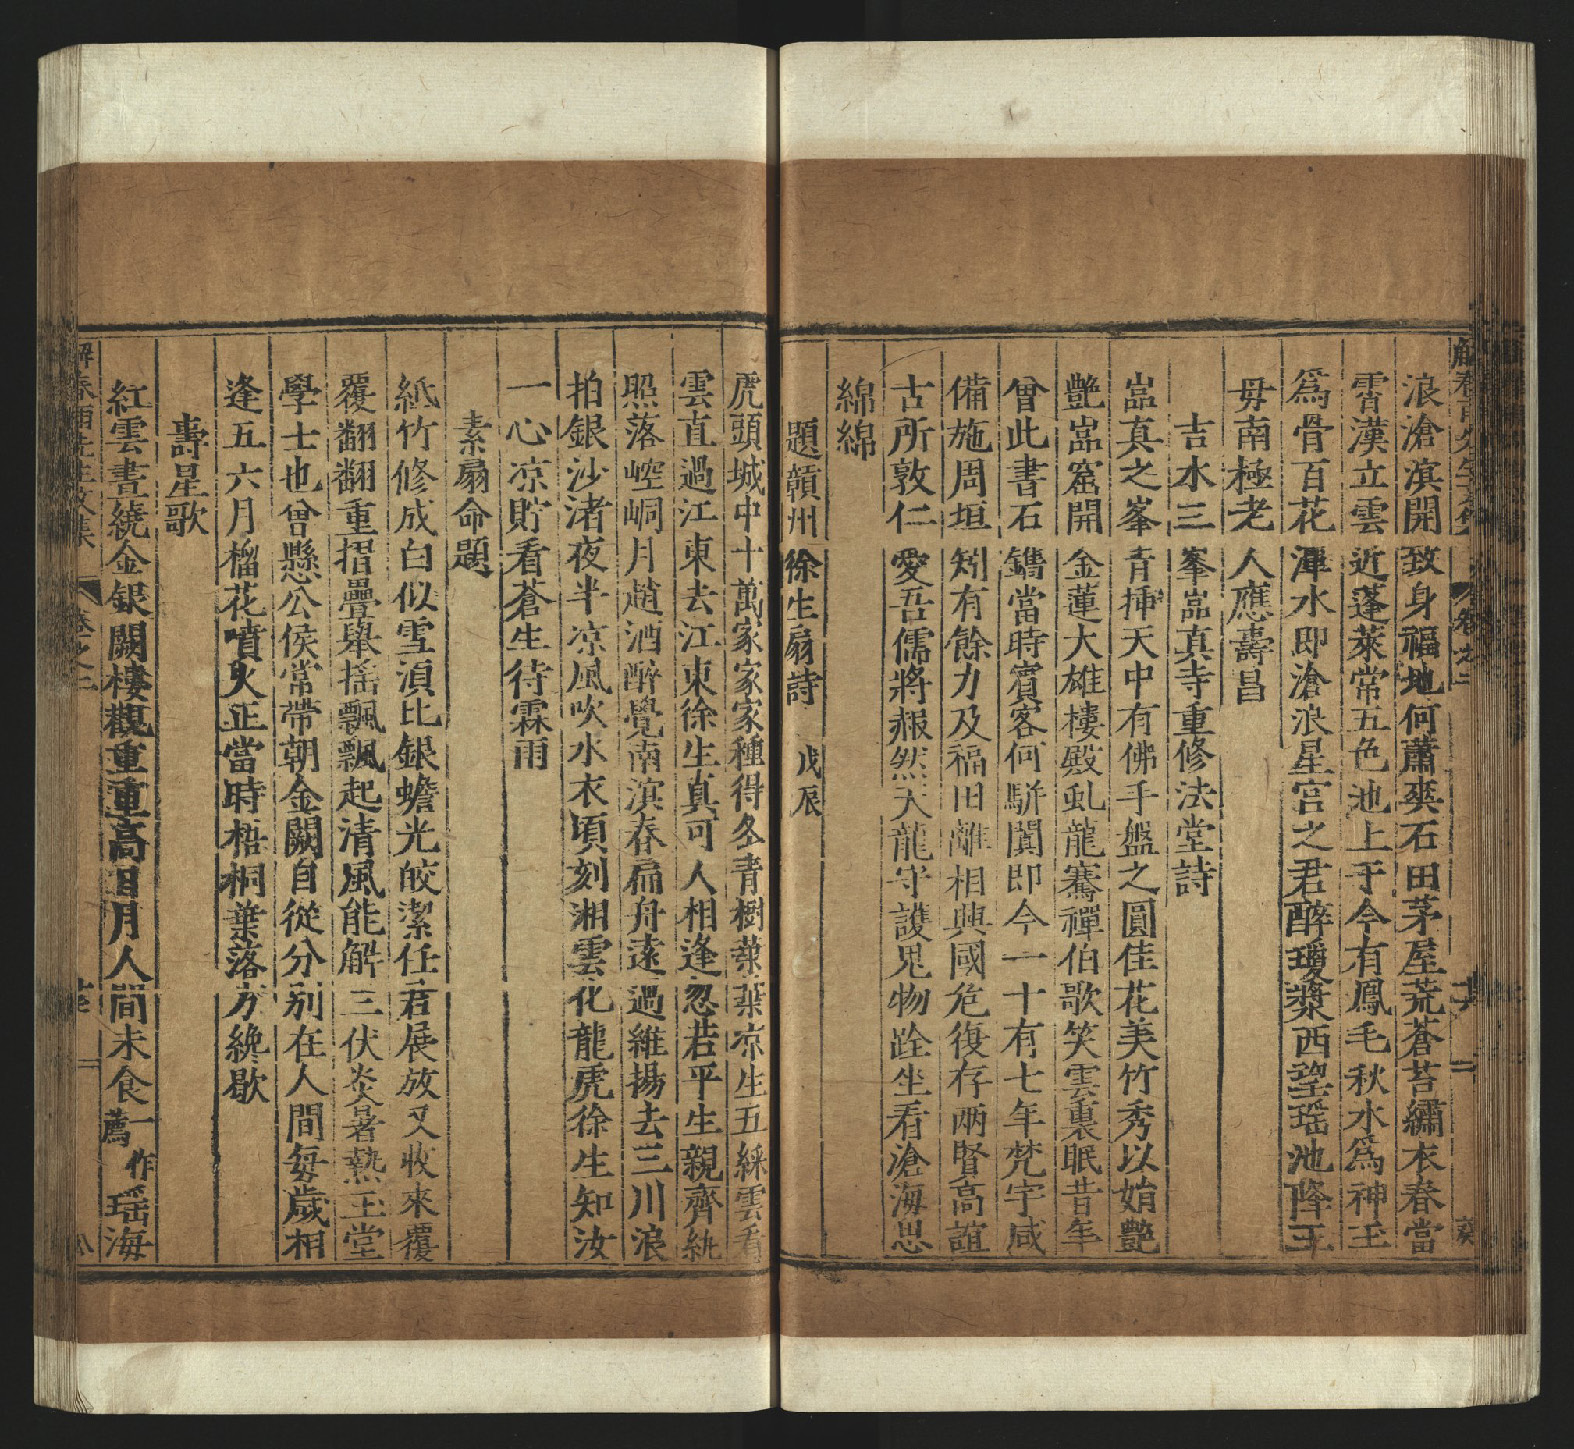 浪滄濵開致身福地何蕭爽石田茅屋荒蒼苔繡衣春當
霄漢立雲近蓬萊常五色池上于今有鳳毛秋水爲神玉
爲骨百花潭水即滄浪星宫之君醉瓊漿西望瑶池降王
母南極老人應壽昌
吉水三峯嵓真寺重修法堂詩
嵓真之峯青揷天中有佛手盤之圓佳花美竹秀以娟艷
艷嵓窟開金蓮大雄樓殿虬龍騫禪伯歌笑雲裏眠昔年
曾此書石鐫當時賓客何駢闐即今一十有七年梵宇咸
備施周垣矧有餘力及福田離相興國危復存兩賢高誼
古所敦仁愛吾儒將赧然天龍守護鬼物跧坐看滄海思
綿綿
題贛州徐生扇詩 戊辰
虎頭城中十萬家家家種得冬青樹葉葉凉生五綵雲看
雲直過江東去江東徐生真可人相逢忽若平生親齊紈
照落崆峒月趙酒醉覺南濵春扁舟遠過維揚去三川浪
拍銀沙渚夜半凉風吹水衣頃刻湘雲化龍虎徐生知汝
一心凉貯看蒼生待霖雨
素扇命題
紙竹修成白似雪須比銀蟾光皎潔任君展放又收來覆
覆翻翻重摺疊舉摇飄飄起清風能解三伏炎暑熱玉堂
學士也曾懸公侯常帶朝金闕自從分别在人間每歲相
逢五六月榴花噴火正當時梧桐葉落方纔歇
壽星歌
紅雲晝繞金銀闕樓觀重重高日月人間未食一作薦瑶海
解春雨先生文集 卷之二